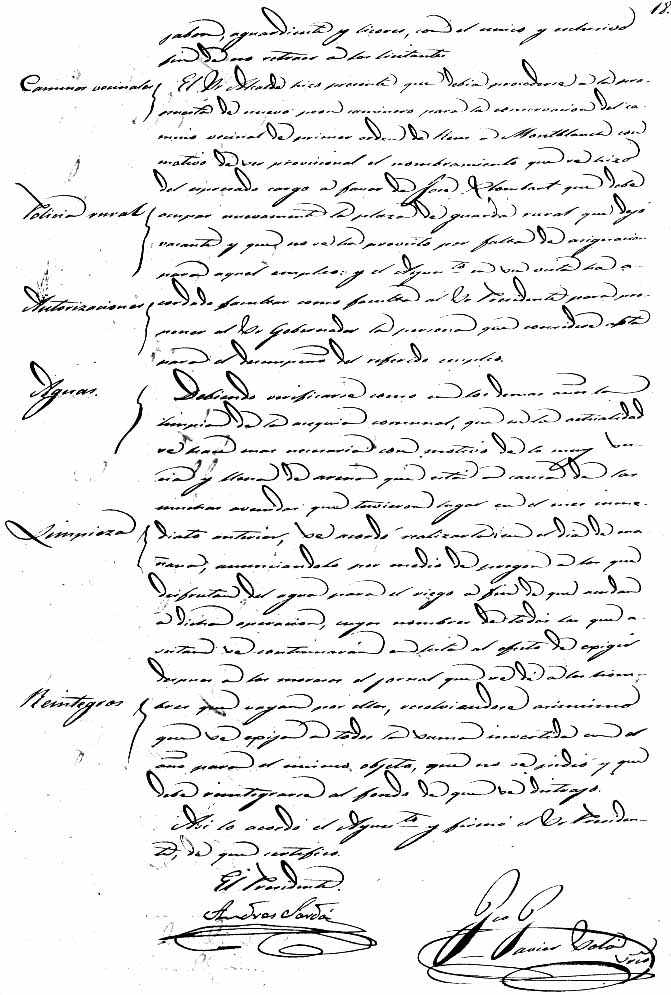 18.
jabon, aguardiente y licores, con el unico y exclusivo
fin de no retraer a los licitantes.
Caminos vecinales
El Sr Alcalde hizo presente que debia procederse a la pro-
puesta de nuevo peon caminero para la conservacion del ca-
mino vecinal de primer orden de a Montblanch con
motivo de ser provisional el nombramiento que se hizo
del espresado cargo a favor de José que debe
Policia rural
ocupar nuevamente la plaza de guarda rural que dejó
vacante y que no se ha provisto por falta de asignacion
para aquel empleo: y el Ayunto en su vista ha a-
Autorizaciones
cordado facultar como faculta al Sr Presidente para pro-
poner al Sr Gobernador la persona que considere apta
para el desempeño del referido empleo.
Aguas.
Debiendo verificarse como en los demas años la
limpia de la acequia comunal, que en la actualidad
se hace mas necesaria con motivo de lo muy su-
cia y llena de arena que está a causa de las
muchas avenidas que tuvieron lugar en el mes inme-
Limpieza
diato anterior, se acordó realizarla en el dia de ma-
ñana, anunciandolo por medio de pregon a los que
disfrutan del agua para el riego a fin de que acudan
a dicha operacion, cuyos nombres de todos los que a-
sistan se continuarán en lista al efecto de exigir
despues a los morosos el jornal que se dé a los hom-
Reintegros
bres que vayan por ellos, resolviendose asimismo
que se exija a todos la suma invertida en el
año para el mismo objeto, que no se pidió y que
debe reintegrarse al fondo de que se distrajo.
Asi lo acordó el Ayunto y firmó el Sr Presiden-
te, de que certifico.
El Presidente.
Andres Sardá
Javier Solá
Srio